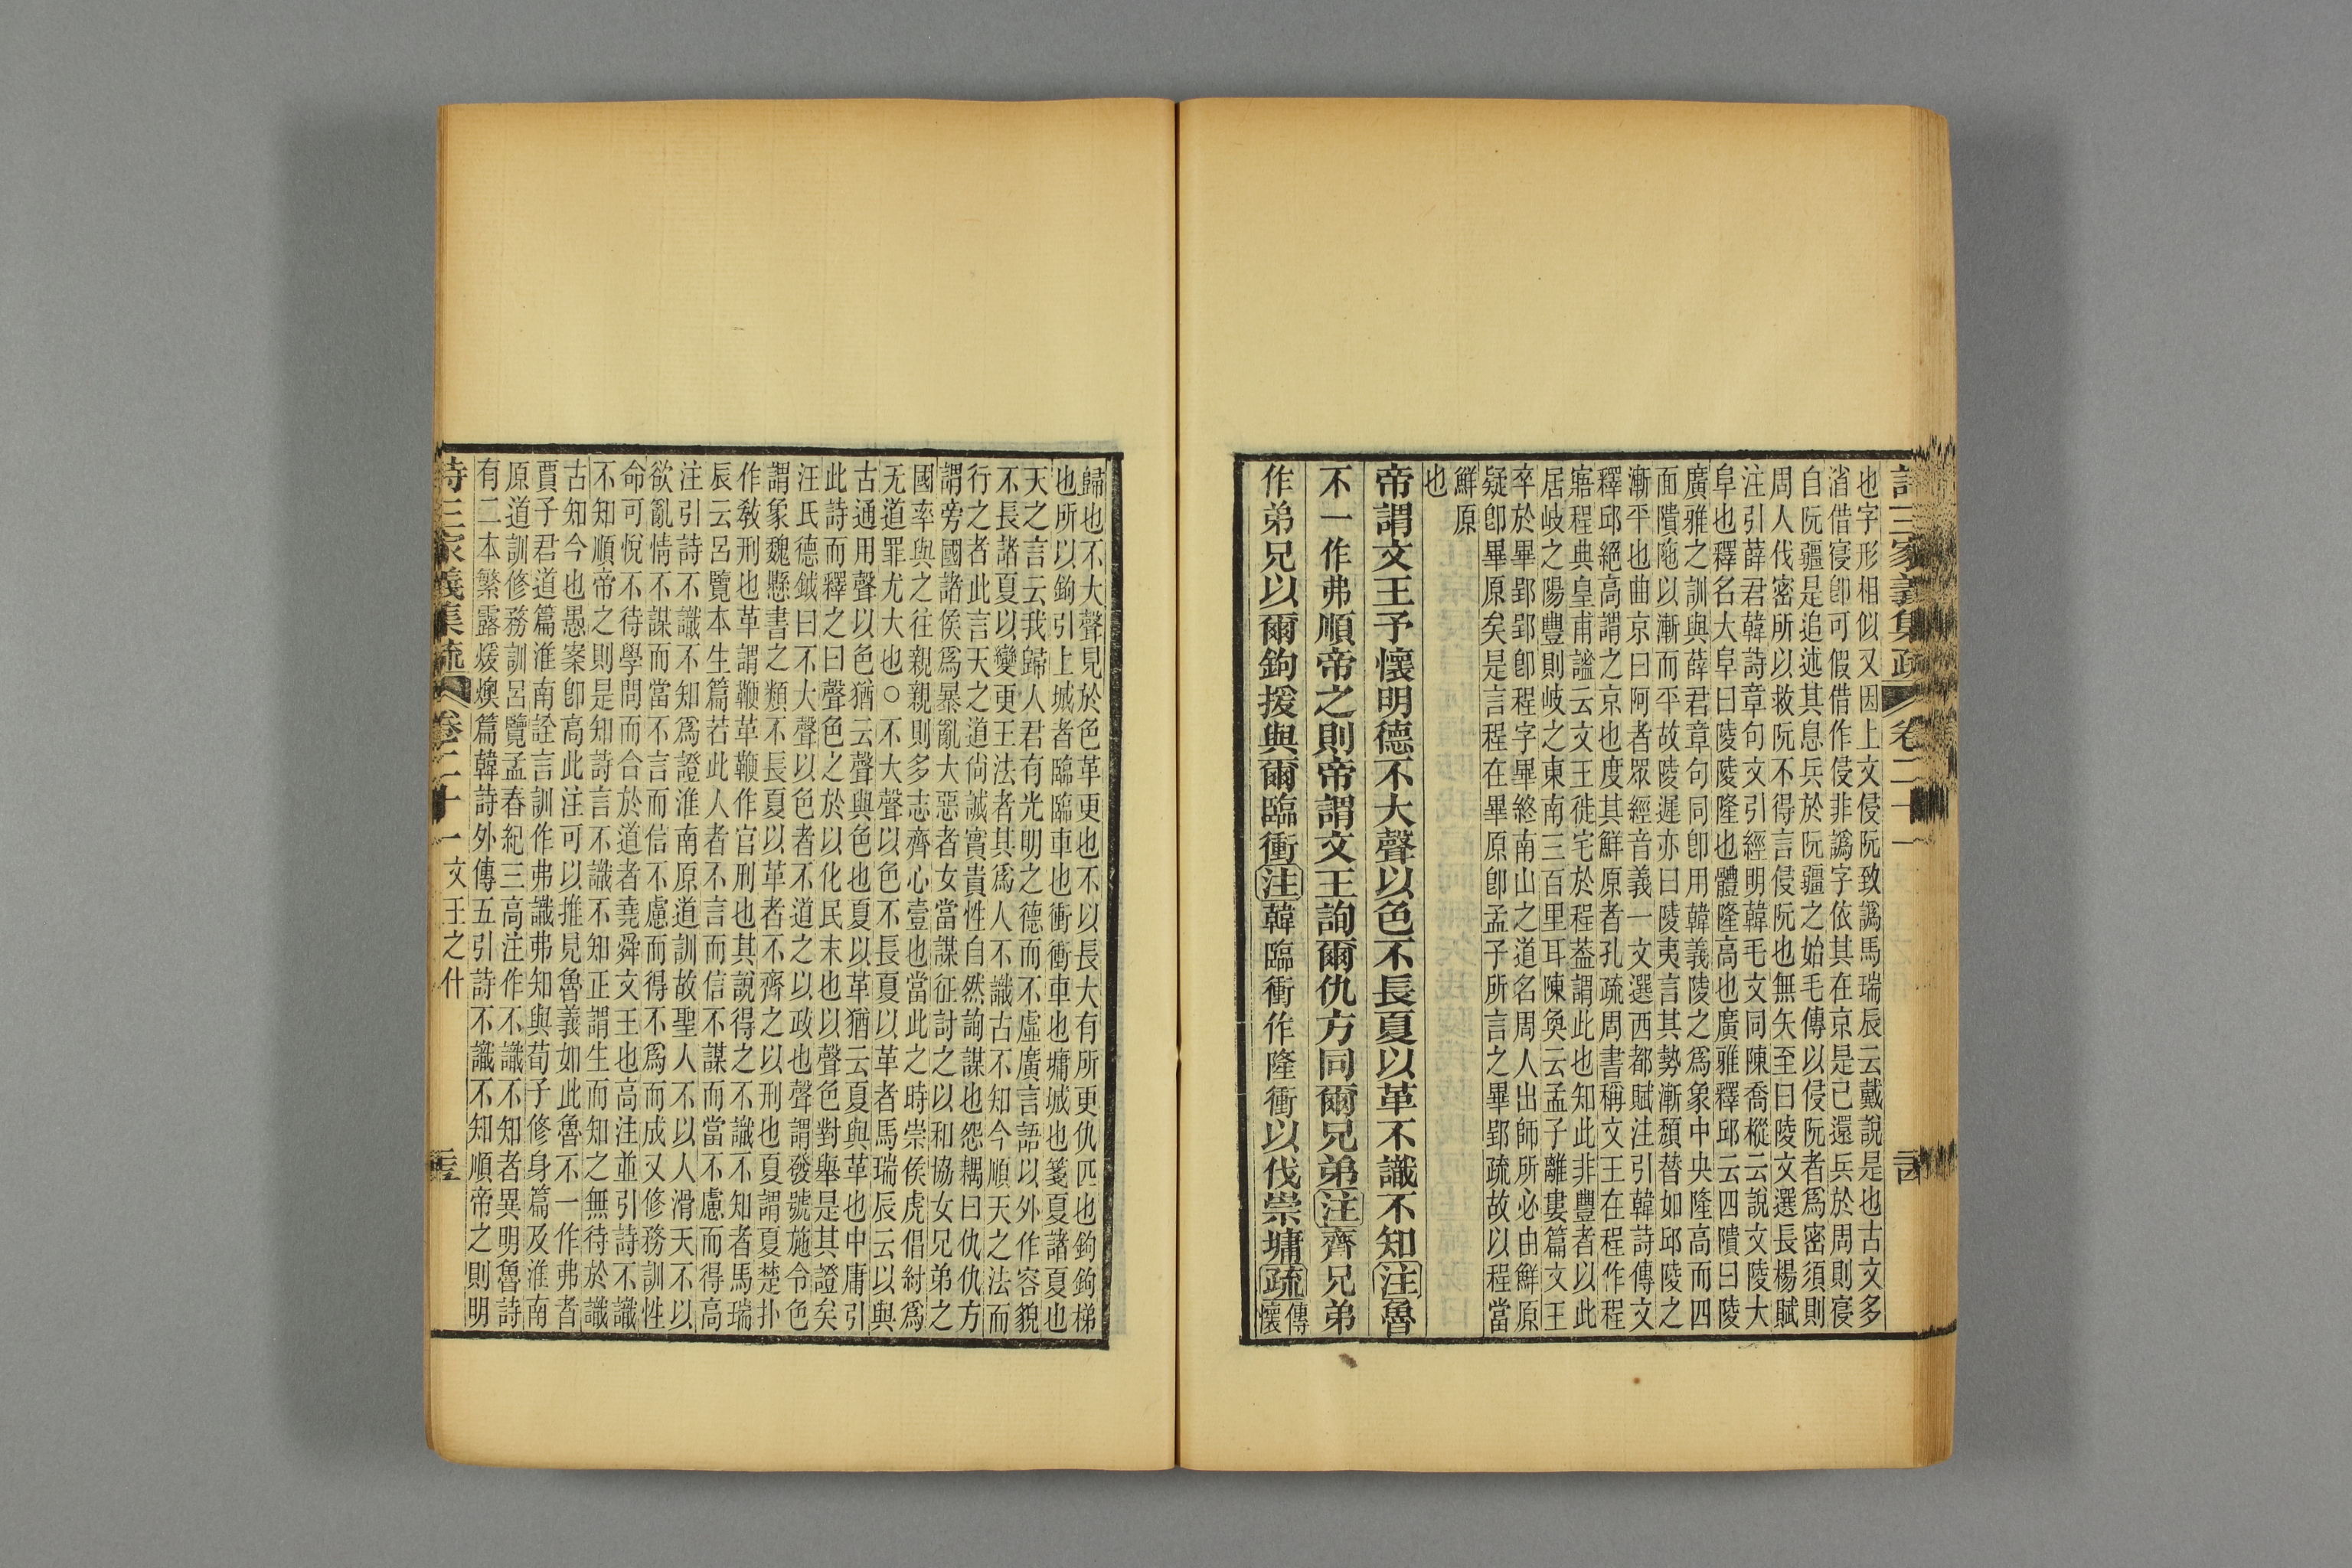 詩三家義集疏 卷二十一
也字形相似又因上文侵阮致譌馬瑞辰云戴說是也古文多
渻借寑卽可假借作侵非譌字依其在京是已還兵於周則寑
自阮疆是追述其息兵於阮疆之始毛傳以侵阮者爲密須則
周人伐密所以救阮不得言侵阮也無矢至曰陵文選長楊賦
注引薛君韓詩章句文引經明韓毛文同陳喬樅云說文陵大
阜也釋名大阜曰陵陵隆也體隆高也廣雅釋邱云四隤曰陵
廣雅之訓與薛君章句同卽用韓義陵之爲象中央隆高而四
面隤陁以漸而平故陵遲亦曰陵夷言其勢漸頹替如邱陵之
漸平也曲京曰阿者眾經音義一文選西都賦注引韓詩傳文
釋邱絕高謂之京也度其鮮原者孔疏周書稱文王在程作程
寤程典皇甫謐云文王徙宅於程葢謂此也知此非豐者以此
居岐之陽豐則岐之東南三百里耳陳奐云孟子離婁篇文王
卒於畢郢郢卽程字畢終南山之道名周人出師所必由鮮原
疑卽畢原矣是言程在畢原卽孟子所言之畢郢疏故以程當
鮮原
也
帝謂文王予懷明德不大聲以色不長夏以革不識不知注魯
不一作弗順帝之則帝謂文王詢爾仇方同爾兄弟注齊兄弟
作弟兄以爾鉤援與爾臨衝注韓臨衝作隆衝以伐崇墉疏傳
懷
歸也不大聲見於色革更也不以長大有所更仇匹也鉤鉤梯
也所以鉤引上城者臨臨車也衝衝車也墉城也箋夏諸夏也
天之言云我歸人君有光明之德而不虛廣言語以外作容貌
不長諸夏以變更王法者其爲人不識古不知今順天之法而
行之者此言天之道尙誠實貴性自然詢謀也怨耦曰仇仇方
謂旁國諸侯爲暴亂大惡者女當謀征討之以和協女兄弟之
國率與之往親親則多志齊心壹也當此之時崇侯虎倡紂爲
无道罪尤大也○不大聲以色不長夏以革者馬瑞辰云以與
古通用聲以色猶云聲與色也夏以革猶云夏與革也中庸引
此詩而釋之曰聲色之於以化民末也以聲色對舉是其證矣
汪氏德鉞曰不大聲以色者不道之以政也聲謂發號施令色
謂象魏懸書之類不長夏以革者不齊之以刑也夏謂夏楚扑
作敎刑也革謂鞭革鞭作官刑也其說得之不識不知者馬瑞
辰云呂覽本生篇若此人者不言而信不謀而當不慮而得高
注引詩不識不知爲證淮南原道訓故聖人不以人滑天不以
欲亂情不謀而當不言而信不慮而得不爲而成又修務訓性
命可悅不待學問而合於道者堯舜文王也高注並引詩不識
不知順帝之則是知詩言不識不知正謂生而知之無待於識
古知今也愚案卽高此注可以推見魯義如此魯不一作弗者
賈子君道篇淮南詮言訓作弗識弗知與荀子修身篇及淮南
原道訓修務訓呂覽孟春紀三高注作不識不知者異明魯詩
有二本繁露煖燠篇韓詩外傳五引詩不識不知順帝之則明
詩三家義集疏 卷二十一 文王之什